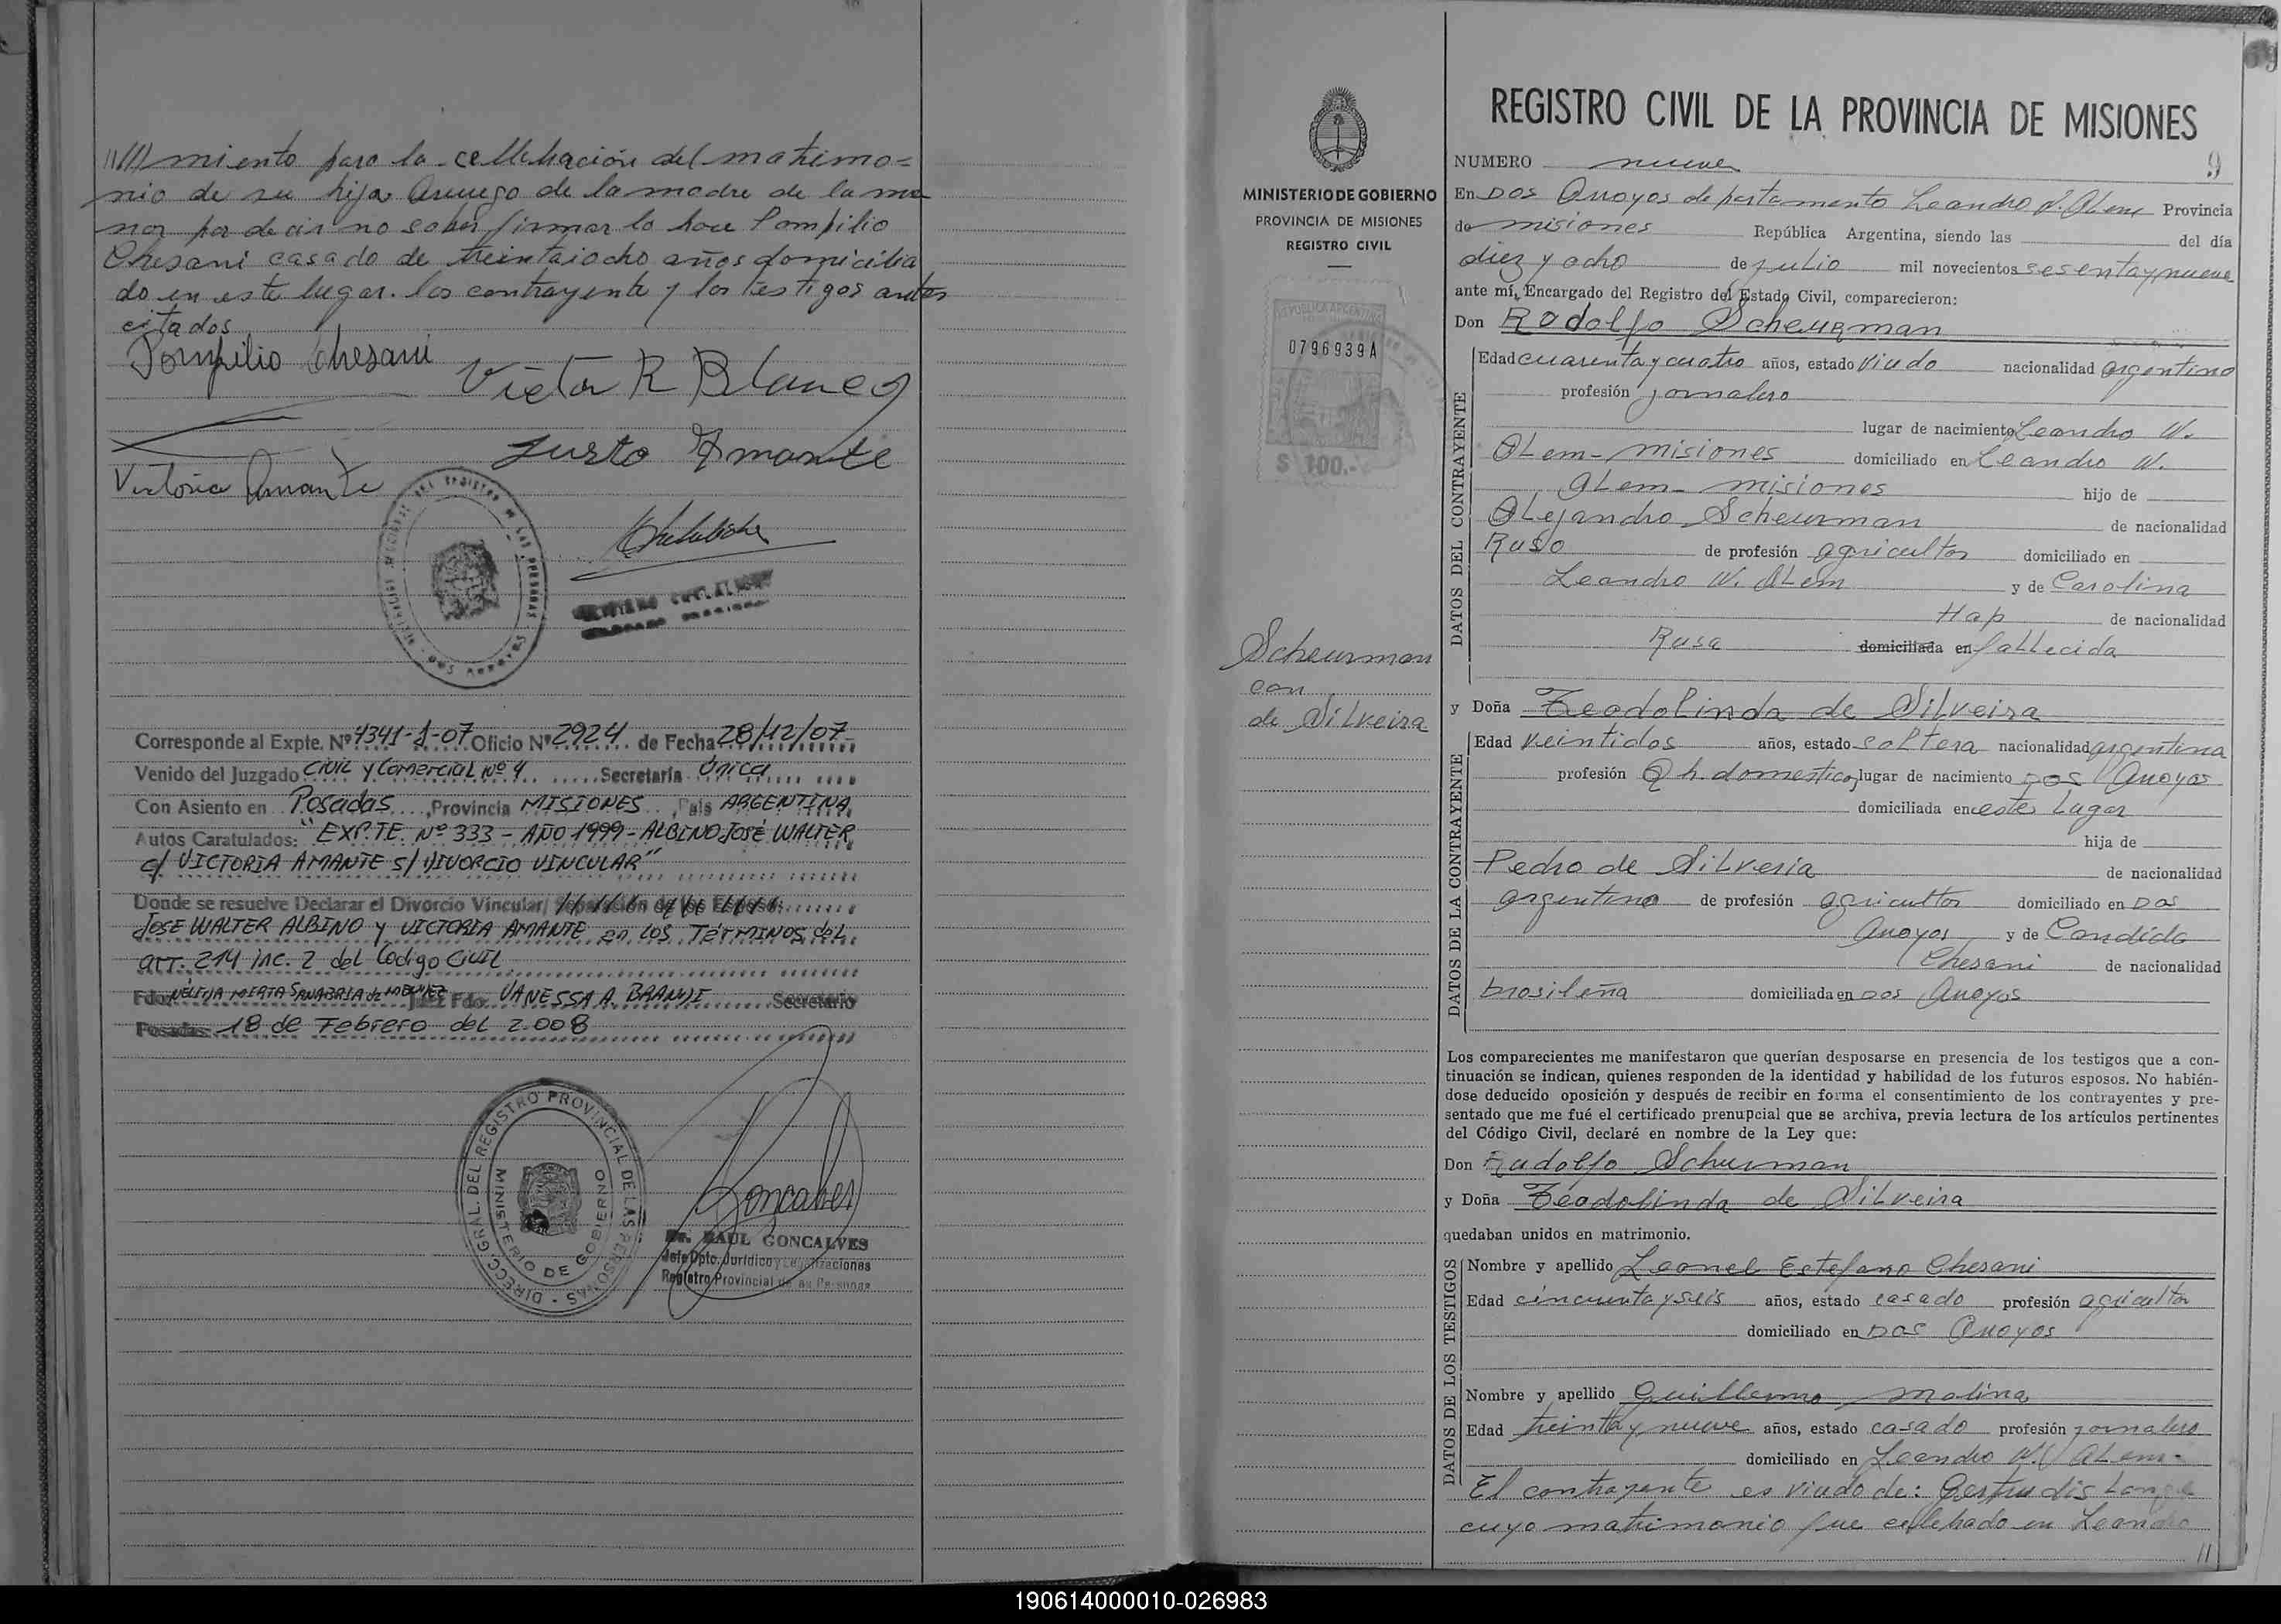 miento para la celebración del matrimo=
nio de su hija Aruego de la madre de la me
nor por decir no saber firmar lo hace Pompilio
Chesani casado de treintaiocho años domicilia
do en este lugar. los contrayente y los testigos antes
citados
Pompilio Chesani
Victor R Blanco
Justo Amante
Victoria Amante
Corresponde al Expte. Nº 4341-J-07 Oficio Nº 2924 de Fecha 28/12/07
Venido del Juzgado Civil y Comercial Nº 4 Secretaría Única
Con Asiento en Posadas, Provincia MISIONES, País ARGENTINA,
Autos Caratulados: "EXP.TE. Nº 333 - AÑO 1999 - ALBINO JOSÉ WALTER
c/ VICTORIA AMANTE S/ DIVORCIO VINCULAR"
Donde se resuelve Declarar el Divorcio Vincular/
JOSE WALTER ALBINO y VICTORIA AMANTE en los TÉRMINOS del
art. 214 inc. 2 del Código Civil
Fdo: Juez Fdo. VANESSA A. Secretario
Posadas: 18 de Febrero del 2.008
DIRECC. GRAL. DEL REGISTRO PROVINCIAL DE LAS PERSONAS
MINISTERIO DE GOBIERNO
Goncalves
Dr. RAUL GONCALVES
Jefe Dpto. Jurídico y Legalizaciones
Registro Provincial de las Personas
69
REGISTRO CIVIL DE LA PROVINCIA DE MISIONES
MINISTERIO DE GOBIERNO
PROVINCIA DE MISIONES
REGISTRO CIVIL
REPUBLICA ARGENTINA
0796939A
$ 100.-
Scheurman
con
de Silveira
NUMERO nueve 9
En Dos Arroyos departamento Leandro N. Alem Provincia
de misiones República Argentina, siendo las del día
diez y ocho de julio mil novecientos sesentaynueve
ante mí, Encargado del Registro del Estado Civil, comparecieron:
Don Rodolfo Scheurman
DATOS DEL CONTRAYENTE
Edad cuarenta y cuatro años, estado viudo nacionalidad argentino
profesión jornalero
lugar de nacimiento Leandro N.
Alem - misiones domiciliado en Leandro N.
Alem - misiones hijo de
Alejandro Scheurman de nacionalidad
Ruso de profesión agricultor domiciliado en
Leandro N. Alem y de Carolina
Hap de nacionalidad
Rusa domiciliada en fallecida
y Doña Teodolinda de Silveira
DATOS DE LA CONTRAYENTE
Edad veintidos años, estado soltera nacionalidad argentina
profesión Q h. domestico, lugar de nacimiento Dos Arroyos
domiciliada en este lugar
hija de
Pedro de Silveria de nacionalidad
argentino de profesión agricultor domiciliado en Dos
Arroyos y de Candida
Chesani de nacionalidad
brasileña domiciliada en Dos Arroyos
Los comparecientes me manifestaron que querían desposarse en presencia de los testigos que a con-
tinuación se indican, quienes responden de la identidad y habilidad de los futuros esposos. No habién-
dose deducido oposición y después de recibir en forma el consentimiento de los contrayentes y pre-
sentado que me fué el certificado prenupcial que se archiva, previa lectura de los artículos pertinentes
del Código Civil, declaré en nombre de la Ley que:
Don Rudolfo Schurman
y Doña Teodolinda de Silveira
quedaban unidos en matrimonio.
DATOS DE LOS TESTIGOS
Nombre y apellido Leonel Estefano Chesani
Edad cincuenta y seis años, estado casado profesión agricultor
domiciliado en Dos Arroyos
Nombre y apellido Guillermo Molina
Edad treinta y nueve años, estado casado profesión jornalero
domiciliado en Leandro N. Alem -
El contrayente es viudo de: Gertrudis Lange
cuyo matrimonio fue cellebado en Leandro
190614000010-026983